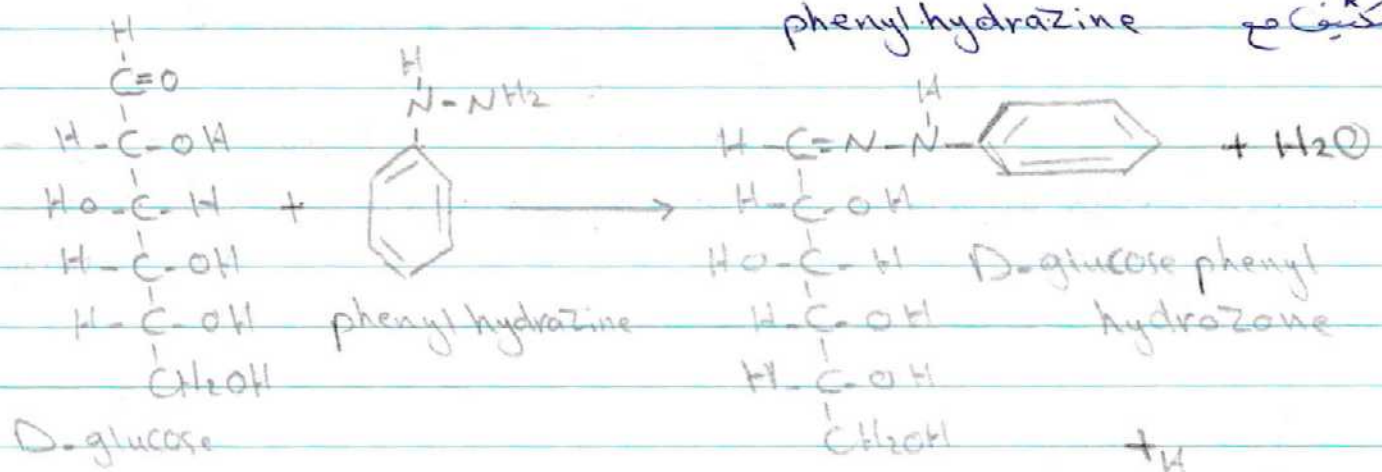 phenyl hydrazine مع
H
C=O
H-C-OH
HO-C-H
H-C-OH
H-C-OH
CH2OH
D-glucose
+
H
N-NH2
phenyl hydrazine
H
H-C=N-N- + H2O
H-C-OH
HO-C-H
H-C-OH
H-C-OH
CH2OH
D-glucose phenyl
hydrozone
+ H